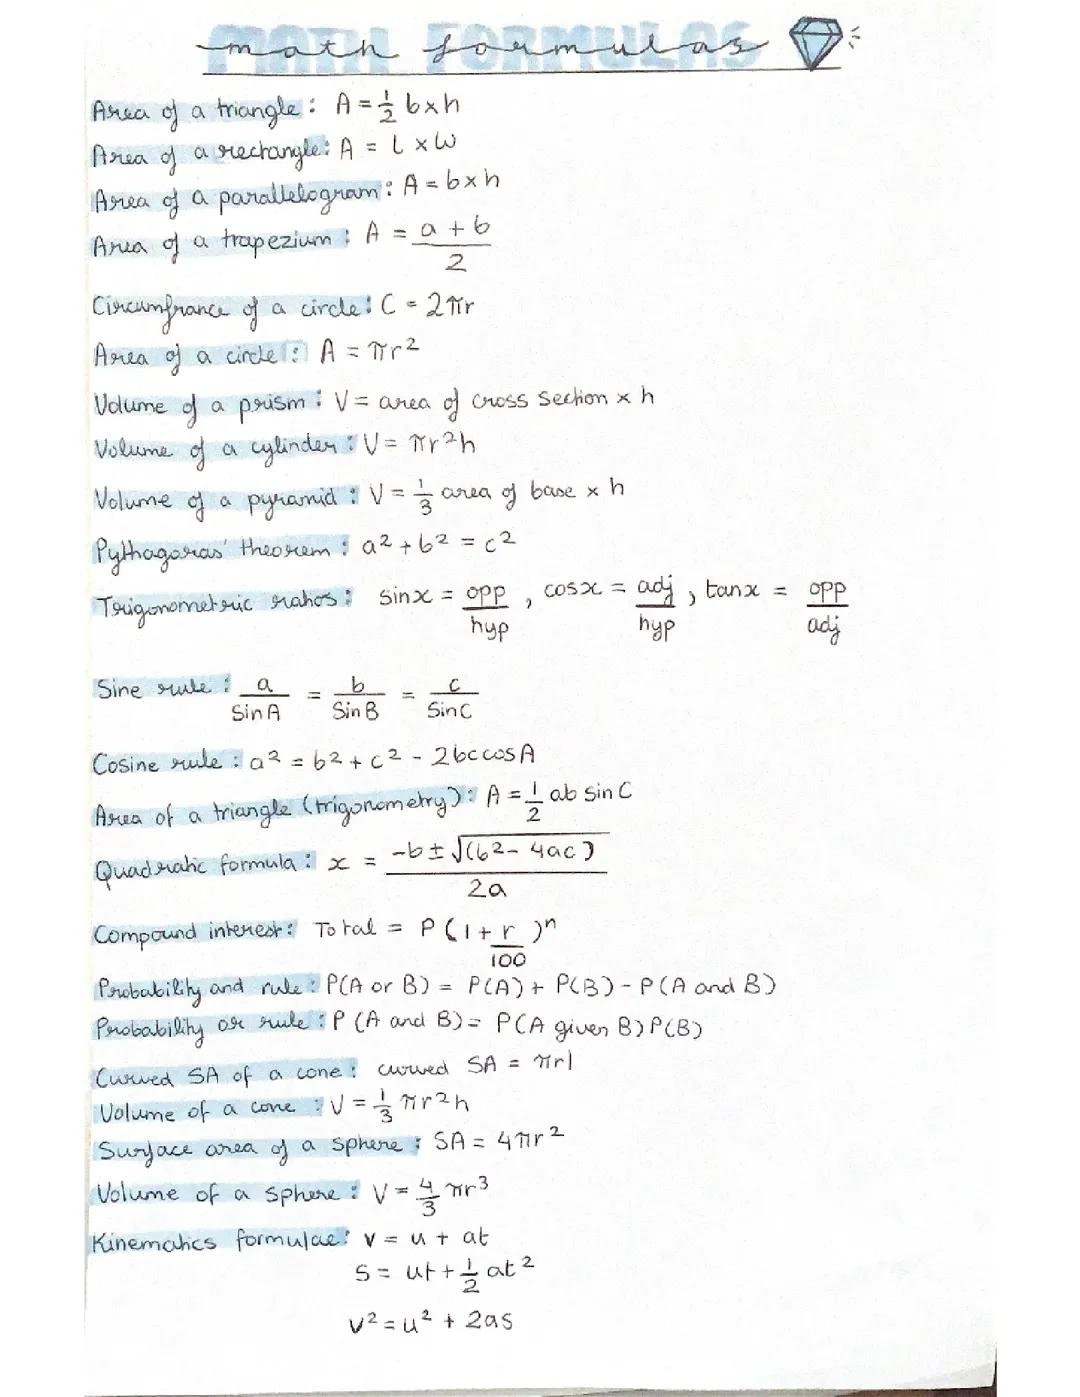 MATH FORMULAS
math formulas
Area of a triangle : A = 1/2 b×h
Area of a rectangle : A = l × w
Area of a parallelogram : A = b×h
Area of a trapezium : A = a + b / 2
Circumfrance of a circle : C = 2πr
Area of a circle : A = πr²
Volume of a prism : V = area of cross section × h
Volume of a cylinder : V = πr²h
Volume of a pyramid : V = 1/3 area of base × h
Pythagoras' theorem : a² + b² = c²
Trigonometric ratios : sinx = opp/hyp , cosx = adj/hyp , tanx = opp/adj
Sine rule : a/SinA = b/SinB = c/SinC
Cosine rule : a² = b² + c² - 2bccosA
Area of a triangle (trigonometry) : A = 1/2 ab sin C
Quadratic formula : x = -b ± √(b² - 4ac) / 2a
Compound interest : Total = P (1 + r/100)ⁿ
Probability and rule : P(A or B) = P(A) + P(B) - P(A and B)
Probability or rule : P (A and B) = P(A given B) P(B)
Curved SA of a cone : curved SA = πrl
Volume of a cone : V = 1/3 πr²h
Surface area of a sphere : SA = 4πr²
Volume of a sphere : V = 4/3 πr³
Kinematics formulae : v = u + at
s = ut + 1/2 at²
v² = u² + 2as